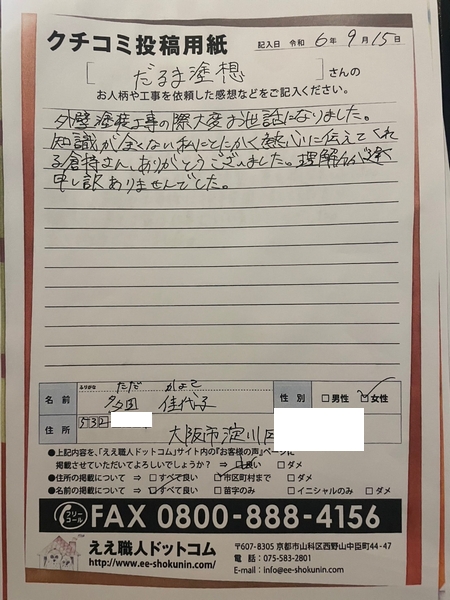 クチコミ投稿用紙
記入日 令和 6年 9月 15日
[ だるま塗想 ] さんの
お人柄や工事を依頼した感想などをご記入ください。
外壁塗装工事の際大変お世話になりました。
知識が全くない私にとにかく熱心に伝えてくれ
る倉持さん、ありがとうございました。理解力が遅く
申し訳ありませんでした。
ふりがな ただ かよこ
名前 多田 佳代子 性別 □男性 ☑女性
住所 〒532
大阪市淀川区
●上記内容を、「ええ職人ドットコム」サイト内の『お客様の声』ページに
掲載させていただいてよろしいでしょうか? ⇒ ☑良い □ダメ
●住所の掲載について ⇒ □すべて良い ☑市区町村まで □ダメ
●名前の掲載について ⇒ ☑すべて良い □苗字のみ □イニシャルのみ □ダメ
フリーコール FAX 0800-888-4156
ええ職人ドットコム
http://www.ee-shokunin.com/
〒607-8305 京都市山科区西野山中臣町44-47
電話:075-583-2801
E-mail:info@ee-shokunin.com